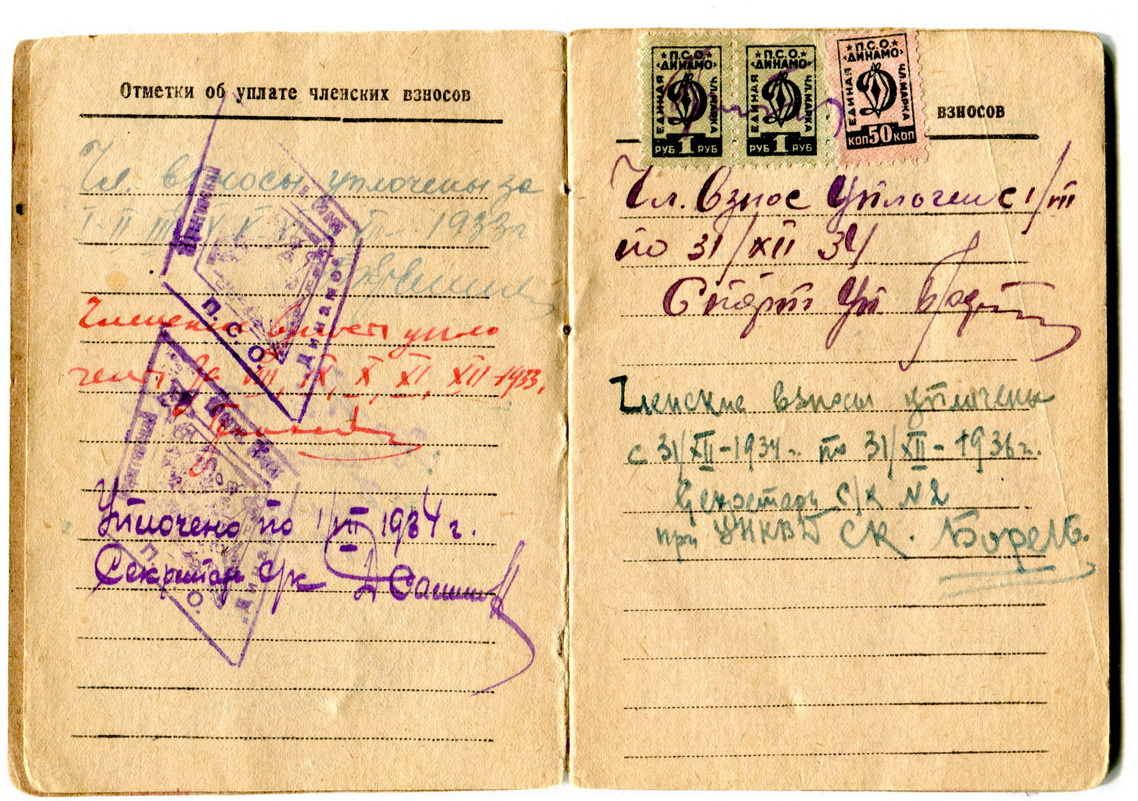 Отметки об уплате членских взносов
Чл. взносы уплочены за
I II III 1933г
Членские взносы упло
чены за VIII, IX, X, XI, XII-1933,
П.С.О.
Динамо
Уплочено по 1/VII 1934 г.
Секретарь с/к
П.
О.
★ П.С.О. ★
"ДИНАМО"
ЕДИНАЯ
ЧЛ.МАРКА
РУБ 1 РУБ
★ П.С.О. ★
"ДИНАМО"
ЕДИНАЯ
ЧЛ.МАРКА
РУБ 1 РУБ
★ П.С.О. ★
"ДИНАМО"
ЕДИНАЯ
ЧЛ.МАРКА
КОП 50 КОП
взносов
Чл. Взнос Уплочен с 1/VII
по 31/XII 34
Членские взносы уплочены
с 31/XII-1934г. по 31/XII-1936г.
Секретарь с/к №2
при УНКВД